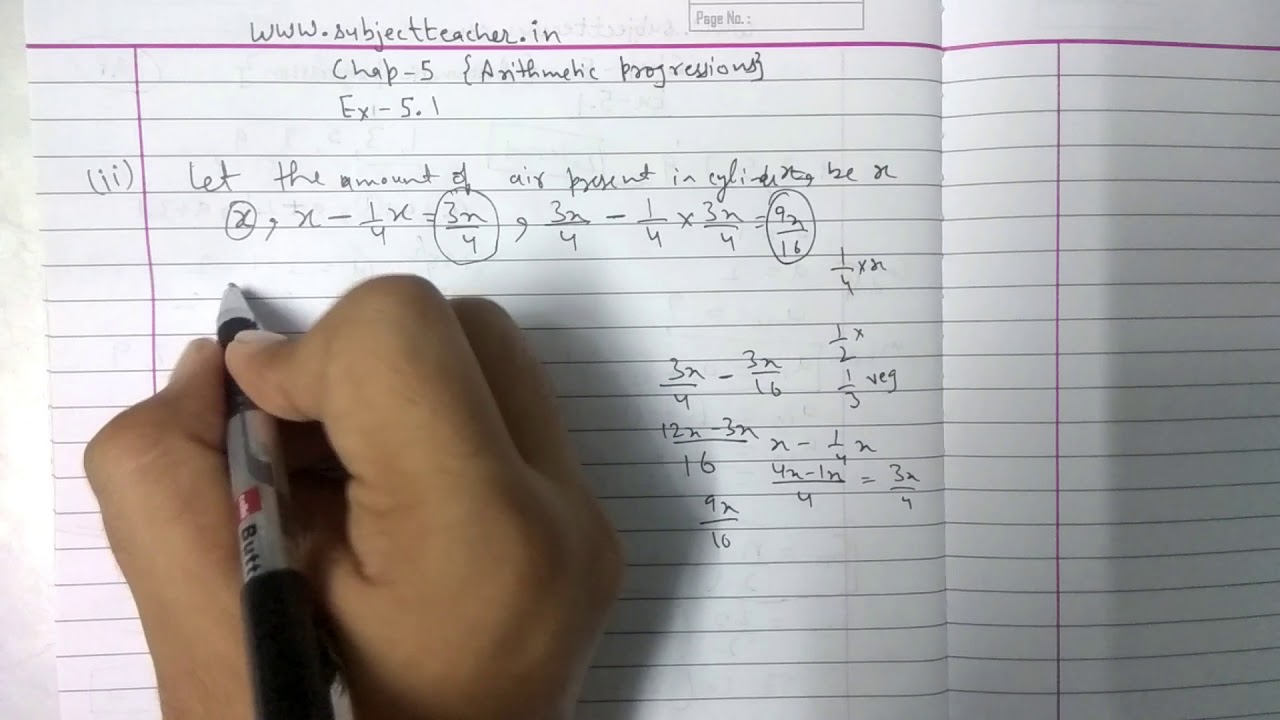 Page No.:
www.subjectteacher.in
Chap-5 {Arithmetic progressions}
Ex-5.1
(ii) Let the amount of air present in cylinder, be x
x, x - 1/4 x = 3x/4, 3x/4 - 1/4 × 3x/4 = 9x/16
1/4 × x
1/2 ×
3x/4 - 3x/16
1/3 veg
12x-3x/16
x - 1/4 x
4x-1x/4 = 3x/4
9x/16
Butt